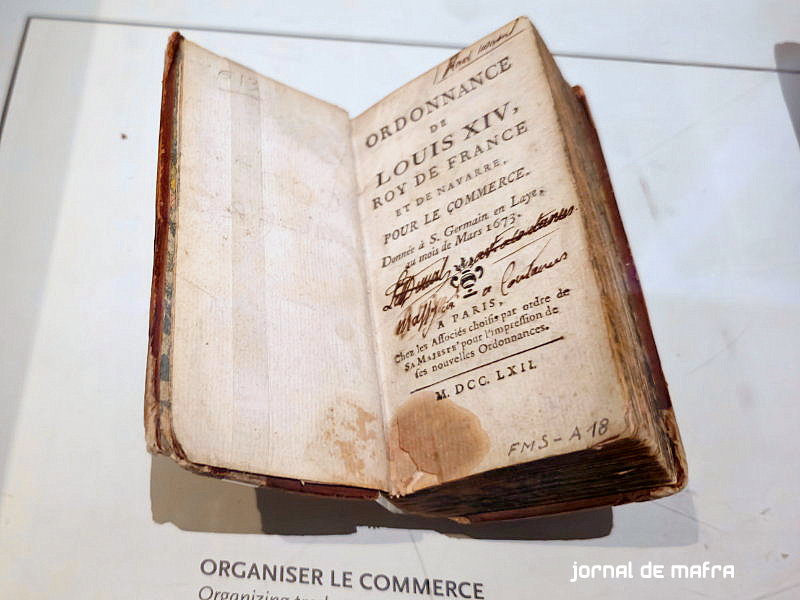 613
ORDONNANCE
DE
LOUIS XIV,
ROY DE FRANCE
ET DE NAVARRE,
POUR LE COMMERCE.
Donnée à S. Germain en Laye,
au mois de Mars 1673.
a Coutances
A PARIS,
Chez les Associés choisis par ordre de
SA MAJESTÉ pour l'impression de
ses nouvelles Ordonnances.
M. DCC. LXII.
FMS-A18
ORGANISER LE COMMERCE
Organizing
jornal de mafra